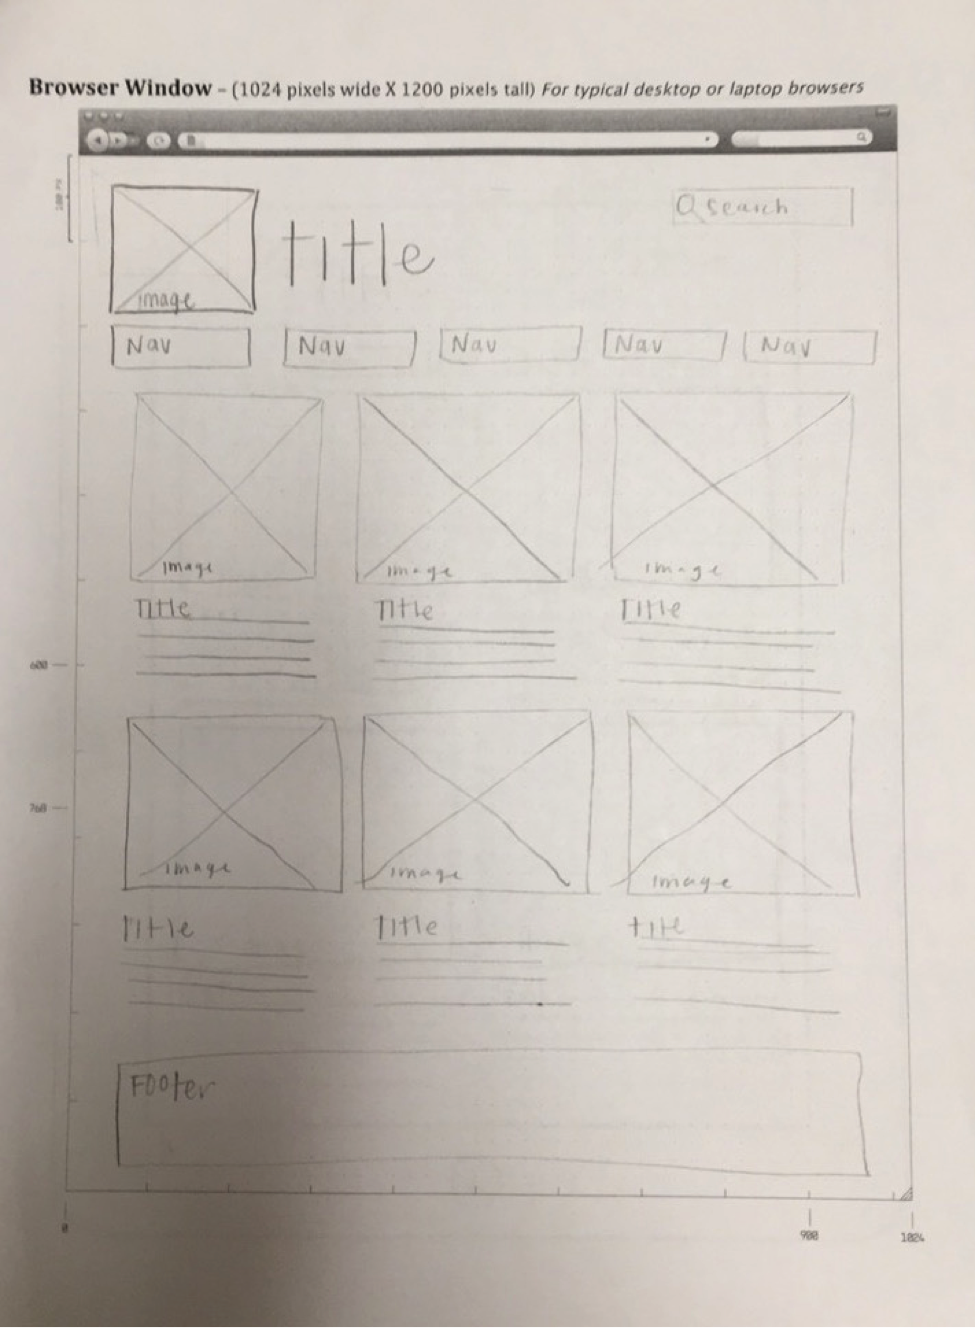 Browser Window – (1024 pixels wide X 1200 pixels tall) For typical desktop or laptop browsers
search
title
image
Nav Nav Nav Nav Nav
image image image
Title Title Title
600
image image image
760
Title Title title
Footer
0 900 1024